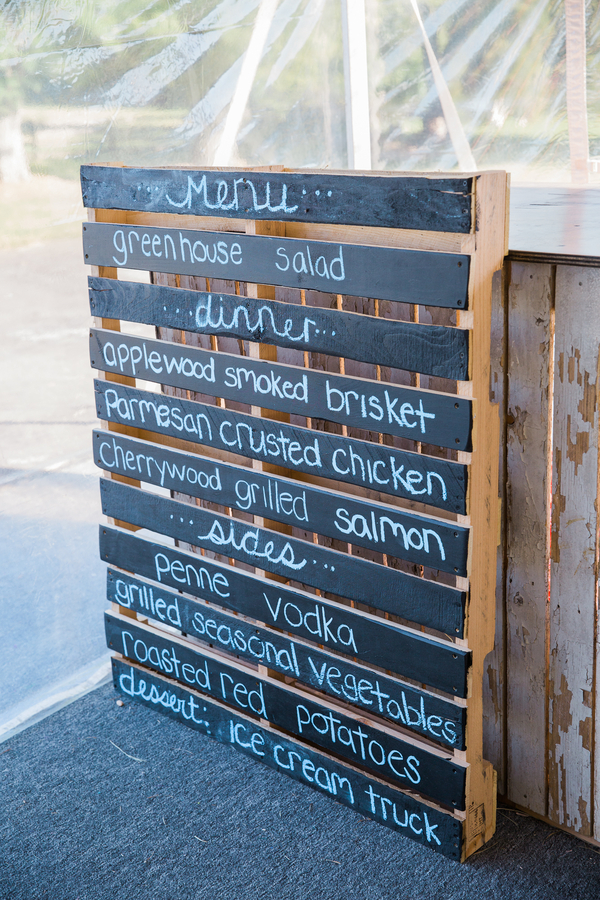 ...Menu...
greenhouse salad
...dinner...
applewood smoked brisket
Parmesan crusted chicken
cherrywood grilled salmon
...sides...
penne vodka
grilled seasonal vegetables
roasted red potatoes
dessert: ice cream truck